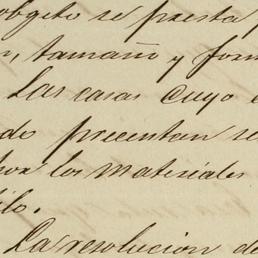 obgeto se presta
tamañ y for
Las casas cuyo
do precentan se
los materiales
La resolucion de